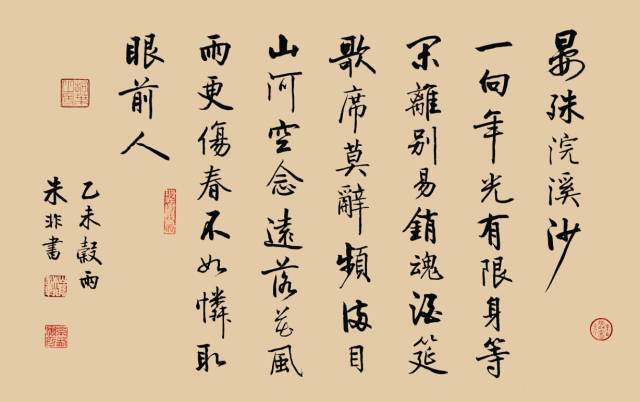 晏殊浣溪沙
一向年光有限身等
闲離别易銷魂酒筵
歌席莫辭頻满目
山河空念遠落花風
雨更傷春不如憐取
眼前人
乙未穀雨
朱非書